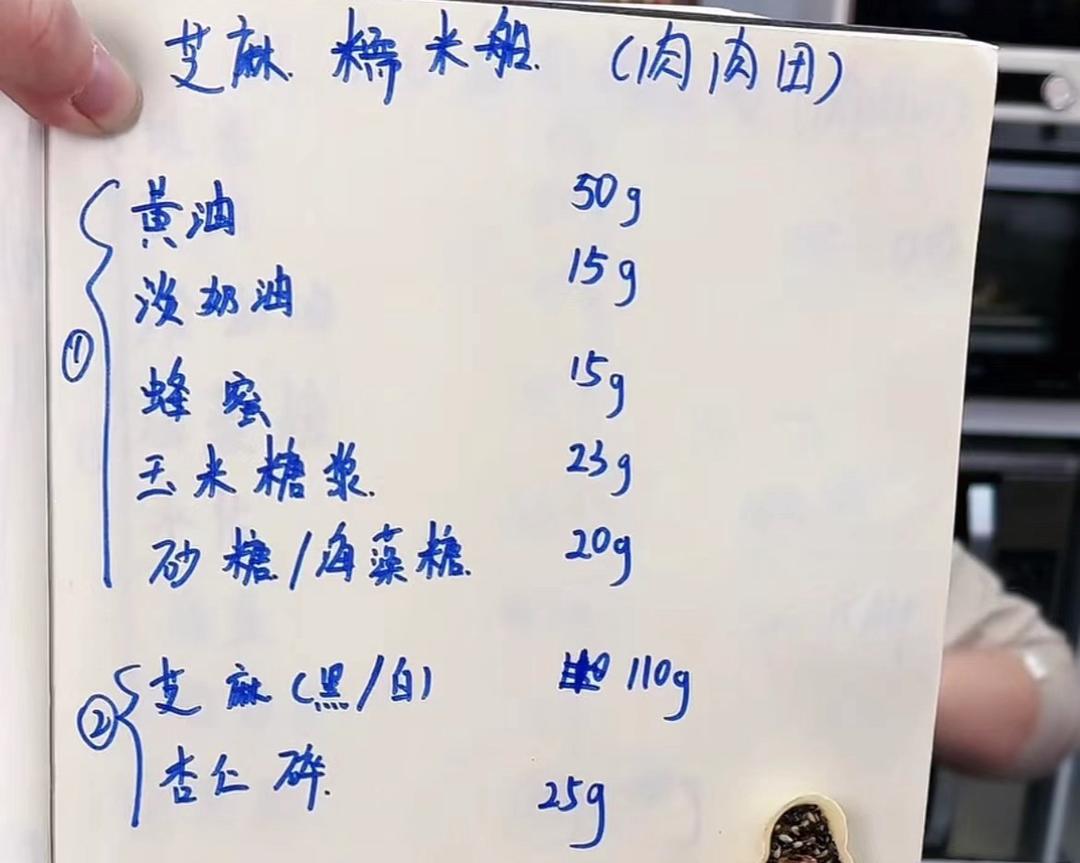 芝麻糯米船 (肉肉团)
黄油 50g
淡奶油 15g
蜂蜜 15g
玉米糖浆 23g
砂糖/海藻糖 20g
① 
芝麻(黑/白) 110g
② 
杏仁碎 25g